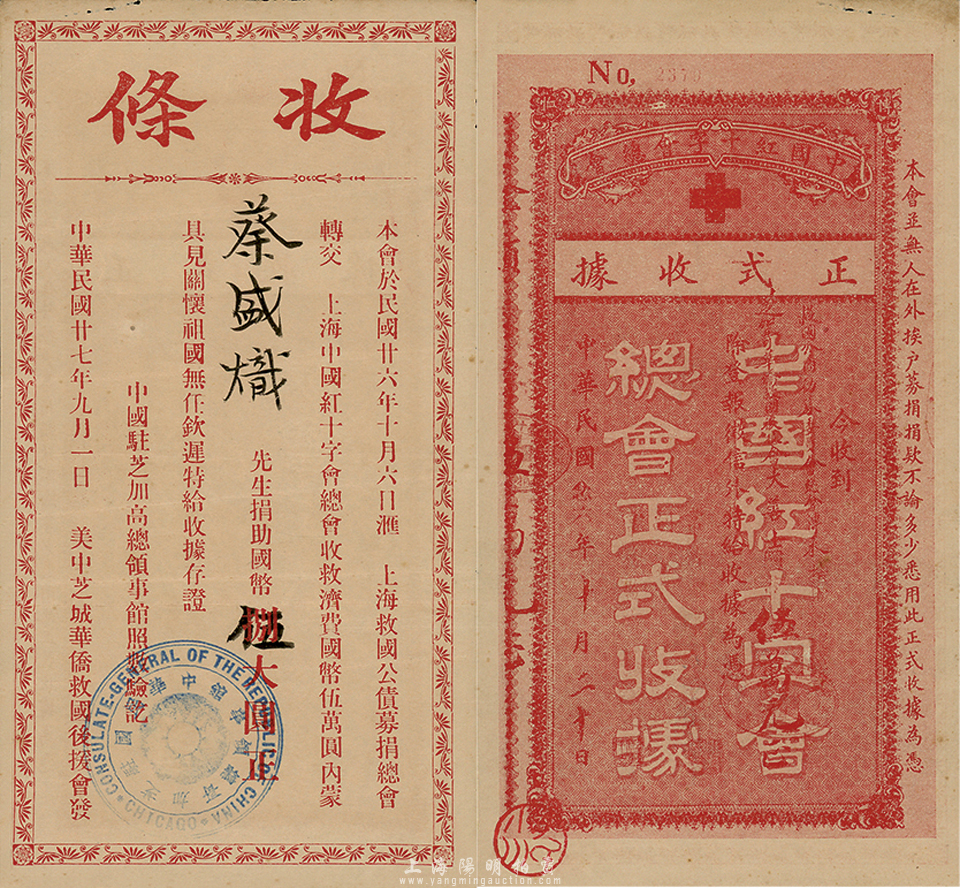 收條
本會於民國廿六年十月六日滙 上海救國公債募捐總會
轉交 上海中國紅十字會總會收救濟費國幣伍萬圓內蒙
蔡盛熾 先生捐助國幣 伍大圓正
具見關懷祖國無任欽遲特給收據存證
中國駐芝加高總領事館照數驗訖
中華民國廿七年九月一日 美中芝城華僑救國後援會發
CONSULATE-GENERAL OF THE REPUBLIC OF CHINA
CHICAGO
No. 2370
中國紅十字會總會
正式收據
本會並無人在外挨戶募捐捐欵不論多少悉用此正式收據為憑
今收到
除登報徵信外特給收據為憑
中國紅十字會
總會正式收據
中華民國 年十月二十日
上海陽明拍賣
www.yangmingauction.com